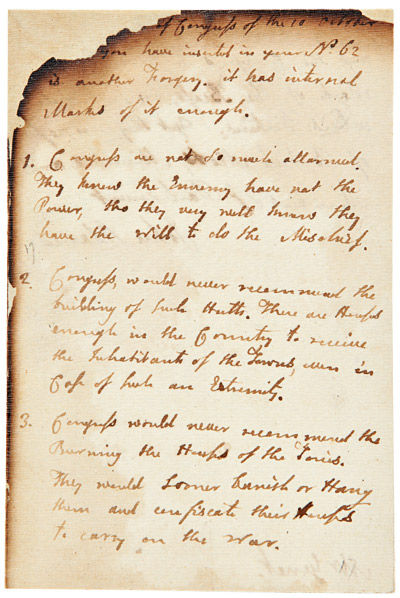 of Congress of the 10 October
you have inserted in your No. 62
is another Forgery. it has internal
Marks of it enough.
1. Congress are not So much allarmed.
They knew the Ennemy have not the
Power, tho they very well know they
have the Will to do the Mischief.
2. Congress, would never recommend the
building of such Hutts. There are Houses
enough in the Country to receive
the Inhabitants of the Towns, even in
Case of such an Extremity.
3. Congress would never recommend the
Burning the Houses of the Tories.
They would Sooner banish or Hang
them and confiscate their Houses
to carry on the War.